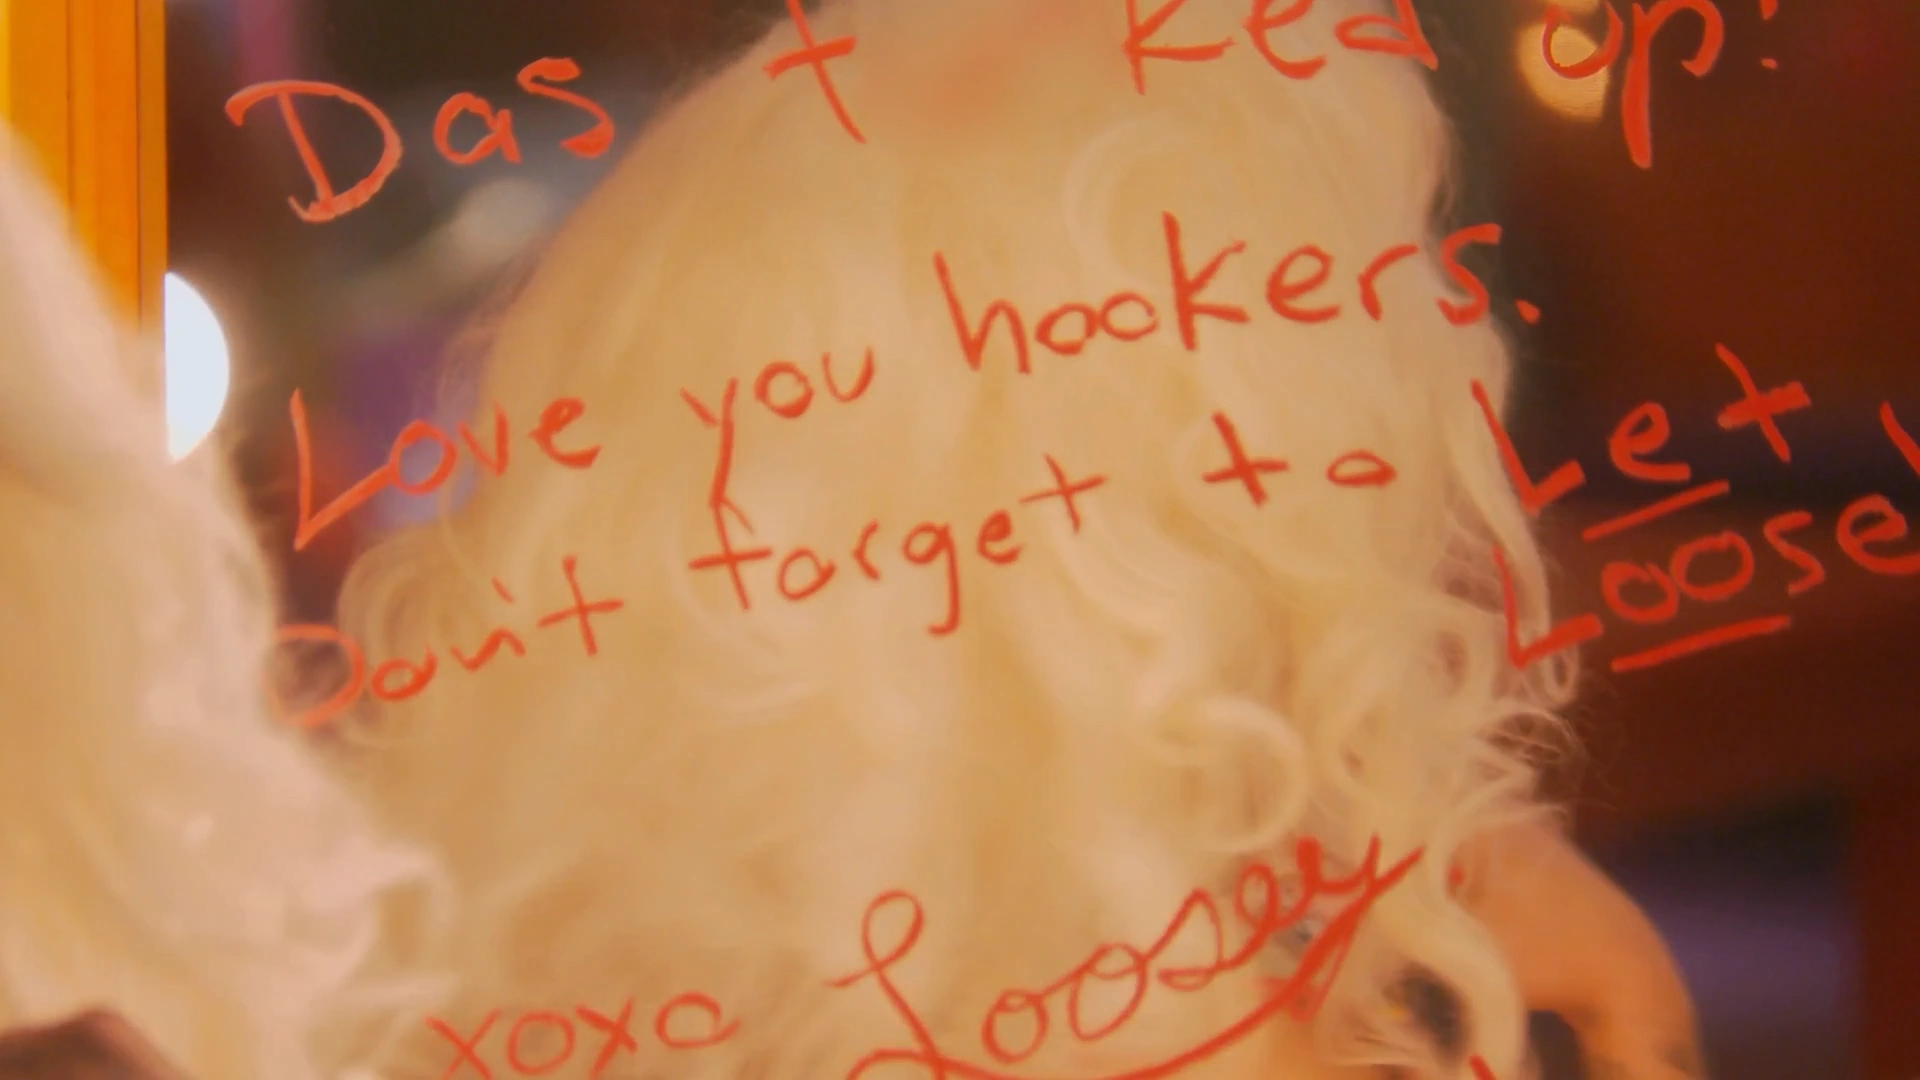 Das f ked up!
Love you hookers.
Don't forget to Let
Loose!
xoxo Loosey